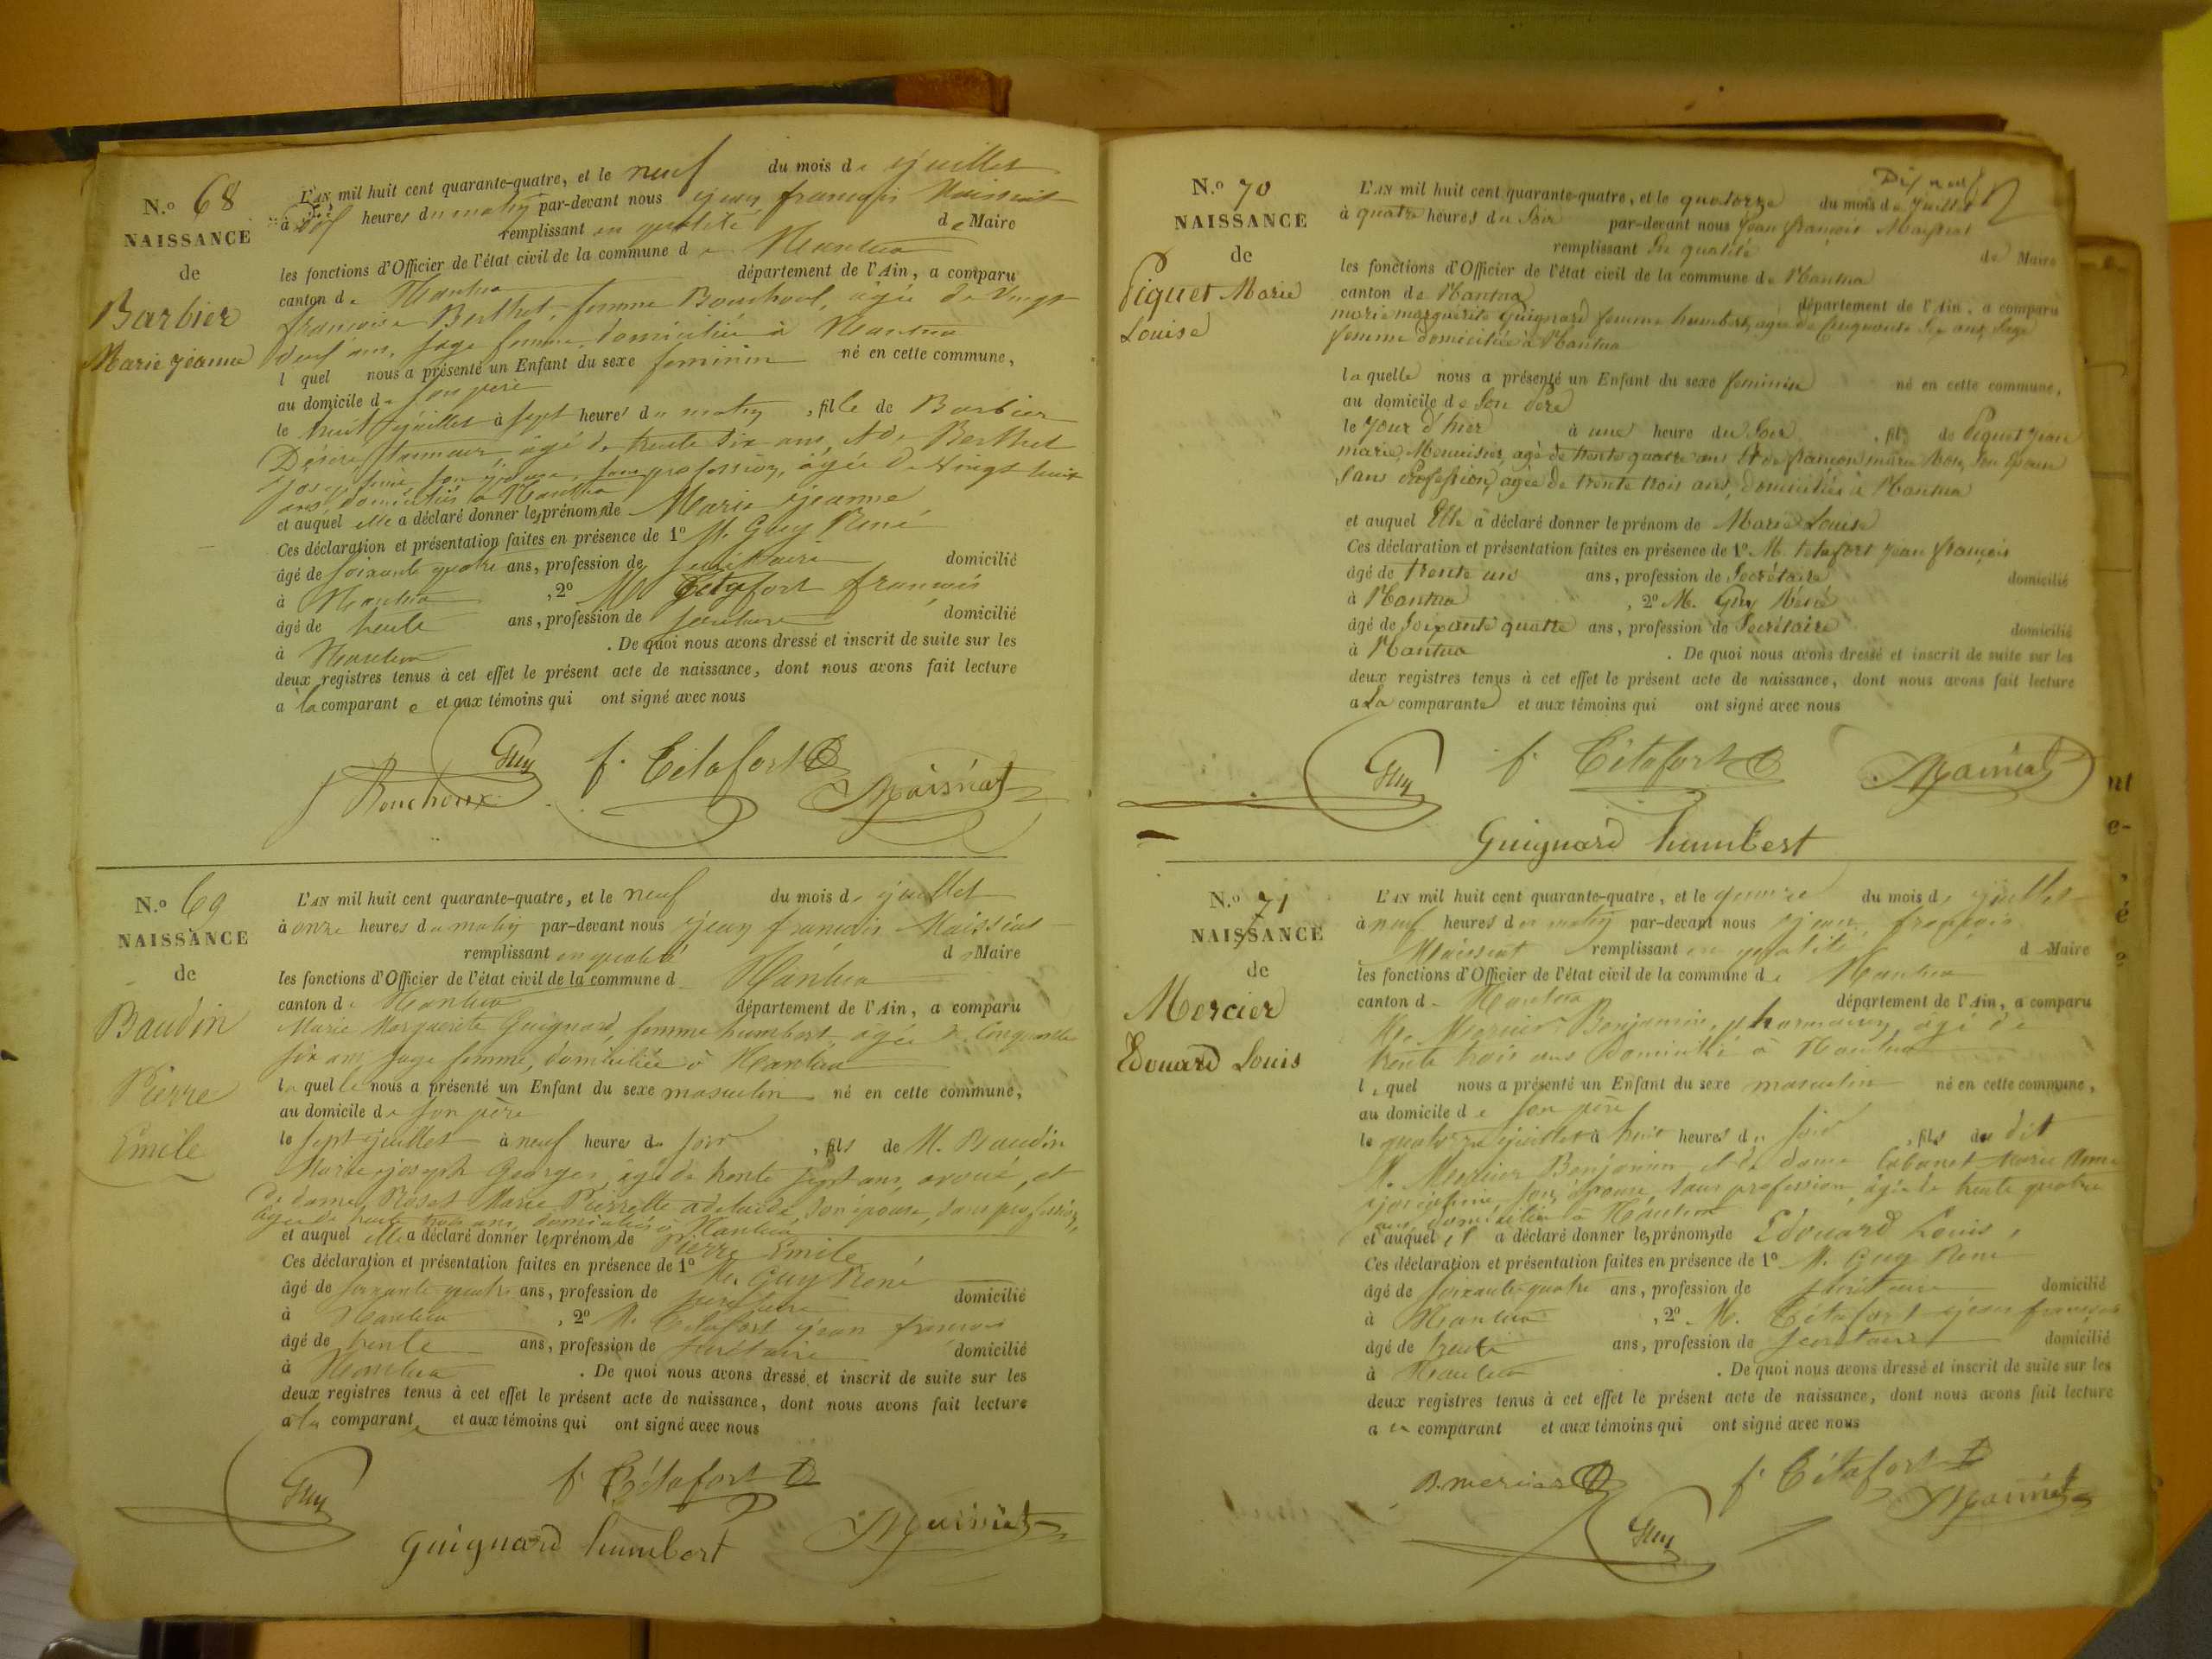 N.o 68
NAISSANCE
de
Barbier
Marie jeanne
L'AN mil huit cent quarante-quatre, et le neuf du mois de juillet
à dix heures du matin par-devant nous jean françois Maissiat
remplissant en qualité de Maire
les fonctions d'Officier de l'état civil de la commune de Nantua
canton de Nantua département de l'Ain, a comparu
françoise Berthet, femme Bouchoux, âgée de vingt
neuf ans, sage femme, domiciliée à Nantua
l quel nous a présenté un Enfant du sexe feminin né en cette commune,
au domicile de son père
le huit juillet à sept heures du matin, fille de Barbier
âgé de trente six ans, et de Berthet
josephine son épouse, sans profession, âgée de vingt huit
ans, domiciliés à Nantua
et auquel elle a déclaré donner les prénoms de Marie jeanne
Ces déclaration et présentation faites en présence de 1º M. Guy René
âgé de soixante quatre ans, profession de secrétaire domicilié
à Nantua, 2º M. Tétafort françois
âgé de trente ans, profession de secrétaire domicilié
à Nantua. De quoi nous avons dressé et inscrit de suite sur les
deux registres tenus à cet effet le présent acte de naissance, dont nous avons fait lecture
a la comparante et aux témoins qui ont signé avec nous
Guy f. Tétafort
Bouchoux Maissiat
N.o 69
NAISSANCE
de
Baudin
Pierre
Emile
L'AN mil huit cent quarante-quatre, et le neuf du mois de juillet
à onze heures du matin par-devant nous jean françois Maissiat
remplissant en qualité de Maire
les fonctions d'Officier de l'état civil de la commune d Nantua
canton de Nantua département de l'Ain, a comparu
Marie Marguerite Guignard, femme humbert, agée de Cinquante
six ans sage femme, domiciliée à Nantua
laquelle nous a présenté un Enfant du sexe masculin né en cette commune,
au domicile de son père
le sept juillet à neuf heures du soir, fils de M. Baudin
Marie joseph Georges, âgé de trente sept ans, avoué, et
de dame Roset Marie Pierrette adelaide son épouse, sans profession,
âgée de trente trois ans, domiciliés à Nantua
et auquel elle a déclaré donner les prénoms de Pierre Emile
Ces déclaration et présentation faites en présence de 1º M. Guy René
âgé de soixante quatre ans, profession de secrétaire domicilié
à Nantua, 2º M. Tétafort jean françois
âgé de trente ans, profession de secrétaire domicilié
à Nantua. De quoi nous avons dressé et inscrit de suite sur les
deux registres tenus à cet effet le présent acte de naissance, dont nous avons fait lecture
a la comparante et aux témoins qui ont signé avec nous
Guy f. Tétafort
Guignard humbert Maissiat
Dix neuf
N.o 70
NAISSANCE
de
Piquet Marie
Louise
L'AN mil huit cent quarante-quatre, et le quatorze du mois de Juillet
à quatre heures du Soir par-devant nous Jean françois Maissiat
remplissant En qualité de Maire
les fonctions d'Officier de l'état civil de la commune de Nantua
canton de Nantua département de l'Ain, a comparu
marie marguérite Guignard femme humbert, agée de Cinquante Six ans, Sage
femme domiciliée à Nantua
laquelle nous a présenté un Enfant du sexe feminin né en cette commune,
au domicile de Son Père
le Jour d'hier à une heure du Soir, fil de Piquet Jean
marie, Menuisier, agé de trente quatre ans Et de françoise marie Son Epouse
Sans Profession, agée de trente trois ans, domiciliés à Nantua
et auquel Elle a déclaré donner le prénom de Marie Louise
Ces déclaration et présentation faites en présence de 1º M. Tétafort Jean françois
âgé de trente un ans, profession de Secrétaire domicilié
à Nantua, 2º M. Guy Réné
âgé de Soixante quatre ans, profession de Secrétaire domicilié
à Nantua. De quoi nous avons dressé et inscrit de suite sur les
deux registres tenus à cet effet le présent acte de naissance, dont nous avons fait lecture
a La comparante et aux témoins qui ont signé avec nous
Guy f. Tétafort Maissiat
Guignard humbert
N.o 71
NAISSANCE
de
Mercier
Edouard Louis
L'AN mil huit cent quarante-quatre, et le quinze du mois de juillet
à neuf heures du matin par-devant nous jean françois
Maissiat remplissant en qualité d Maire
les fonctions d'Officier de l'état civil de la commune de Nantua
canton de Nantua département de l'Ain, a comparu
M. Mercier Benjamin, pharmacien, âgé de
trente trois ans domicilié à Nantua
lequel nous a présenté un Enfant du sexe masculin né en cette commune,
au domicile de son père
le quatorze juillet à huit heures du soir, fils du dit
M. Mercier Benjamin et de dame Cabanet Marie
josephine, son épouse, sans profession, âgée de trente quatre
ans, domiciliés à Nantua
et auquel il a déclaré donner les prénoms de Edouard Louis,
Ces déclaration et présentation faites en présence de 1º M. Guy René
âgé de soixante quatre ans, profession de secrétaire domicilié
à Nantua, 2º M. Tétafort jean françois
âgé de trente ans, profession de secrétaire domicilié
à Nantua. De quoi nous avons dressé et inscrit de suite sur les
deux registres tenus à cet effet le présent acte de naissance, dont nous avons fait lecture
a u comparant et aux témoins qui ont signé avec nous
B. mercier f. Tétafort
Guy Maissiat